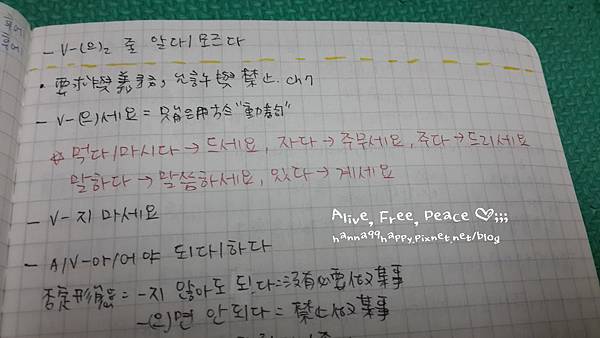 - V-(으)ㄹ 줄 알다/모르다
• 要求與義務, 允許與禁止. ch7
- V-(으)세요 = 只能用於"動詞"
☆ 먹다/마시다 → 드세요, 자다 → 주무세요, 주다 → 드리세요
말하다 → 말씀하세요, 있다 → 계세요
- V-지 마세요
Alive, Free, Peace ♡;;;
hanna99happy.pixnet.net/blog
- A/V-아/어야 되다/하다
否定形態 = -지 않아도 되다 = 沒有必要做某事
-(으)면 안 되다 = 禁止做某事